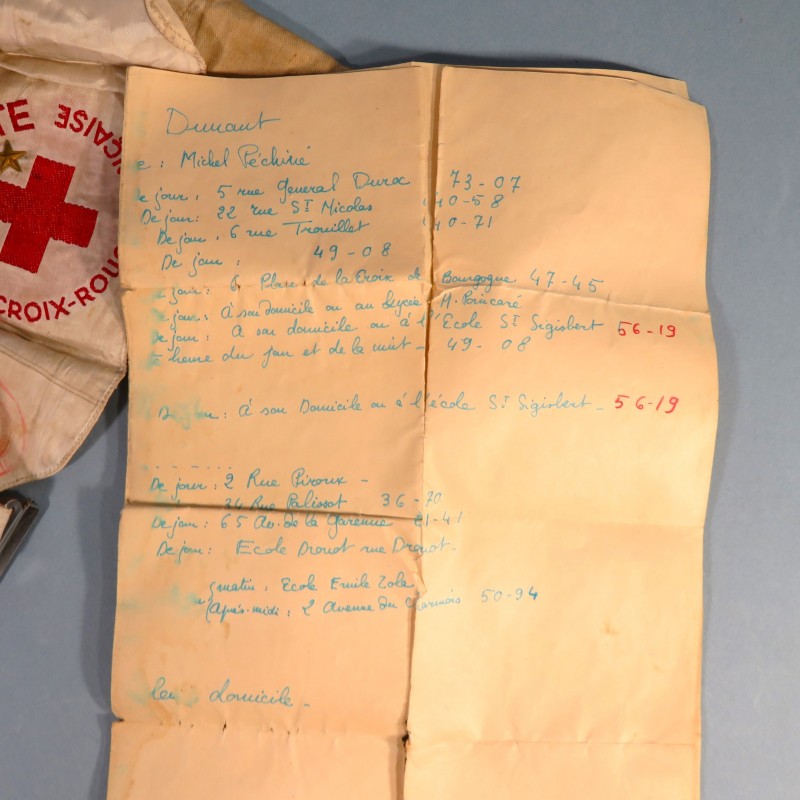 TE
ÇAISE
CROIX-ROU
Dunant
e : Michel Péchiné
e jour : 5 rue General Duroc 73-07
De jour : 22 rue St Nicolas 40-58
De jour : 6 rue Trouillet 40-71
De jour : 49-08
jour : 6 Place de la Croix de Bourgogne 47-45
e jour : À son domicile ou au Lycée H. Poincaré
De jour : À son domicile ou à l'École St Sigisbert 56-19
heure du jour et de la nuit - 49-08
De jour : À son Domicile ou à l'école St Sigisbert - 56-19
De jour : 2 Rue Piroux -
34 Rue Palissot 36-70
De jour : 65 Av. de la Garenne 21-41
De jour : Ecole Drouot rue Drouot.
matin : Ecole Emile Zola
Après-midi : 2 Avenue du Charmois 50-94
leur domicile -